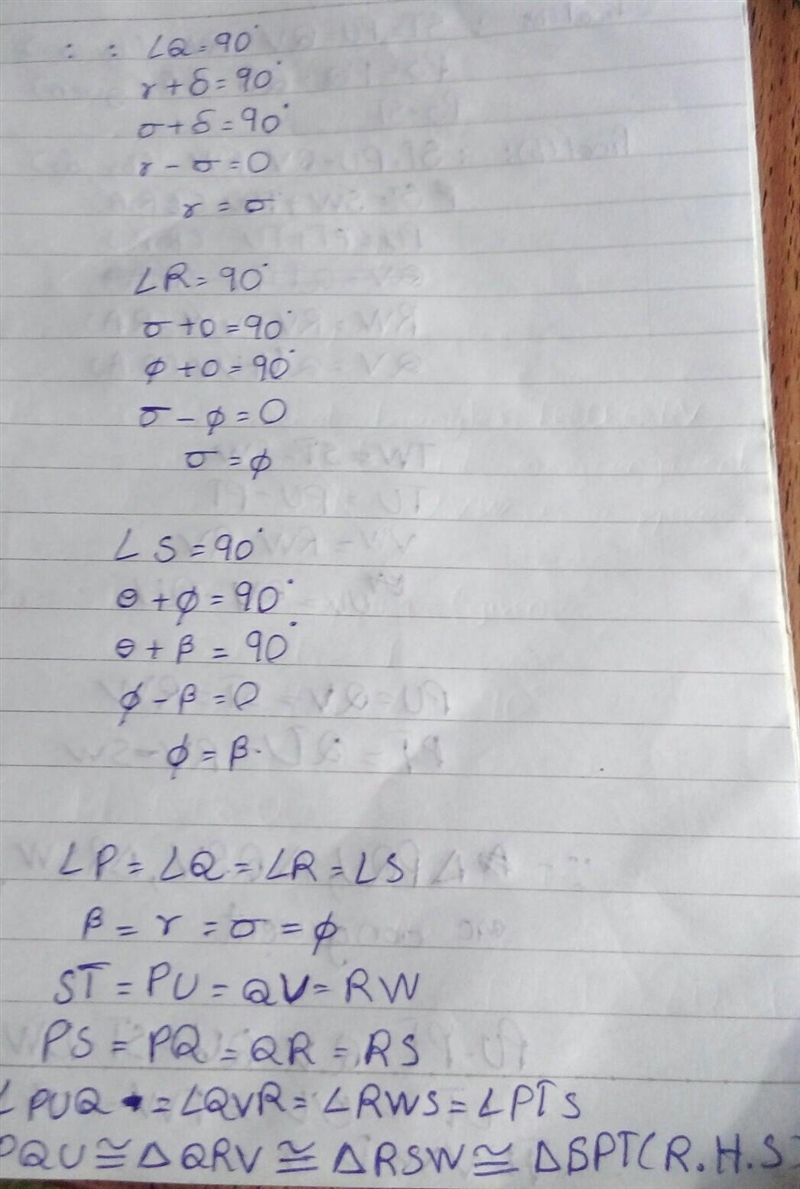 : : ∠Q = 90°
r + δ = 90°
σ + δ = 90°
r - σ = 0
r = σ
∠R = 90°
σ + 0 = 90°
φ + 0 = 90°
σ - φ = 0
σ = φ
∠S = 90°
θ + φ = 90°
θ + β = 90°
φ - β = 0
φ = β.
∠P = ∠Q = ∠R = ∠S
β = r = σ = φ
ST = PU = QV = RW
PS = PQ = QR = RS
∠PUQ = ∠QVR = ∠RWS = ∠PTS
PQU ≅ ΔQRV ≅ ΔRSW ≅ ΔSPT (R.H.S)